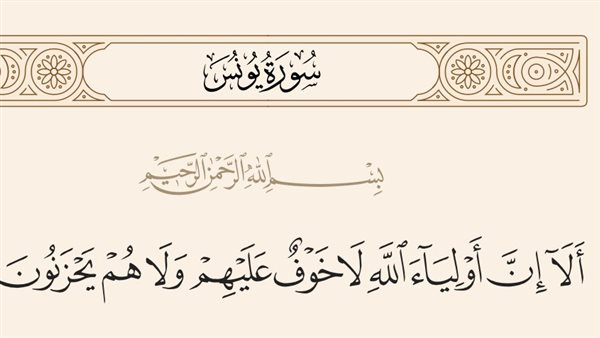 سُورَةُ يُونُسَ
بِسْمِ ٱللَّهِ ٱلرَّحْمَٰنِ ٱلرَّحِيمِ
أَلَآ إِنَّ أَوْلِيَآءَ ٱللَّهِ لَا خَوْفٌ عَلَيْهِمْ وَلَا هُمْ يَحْزَنُونَ